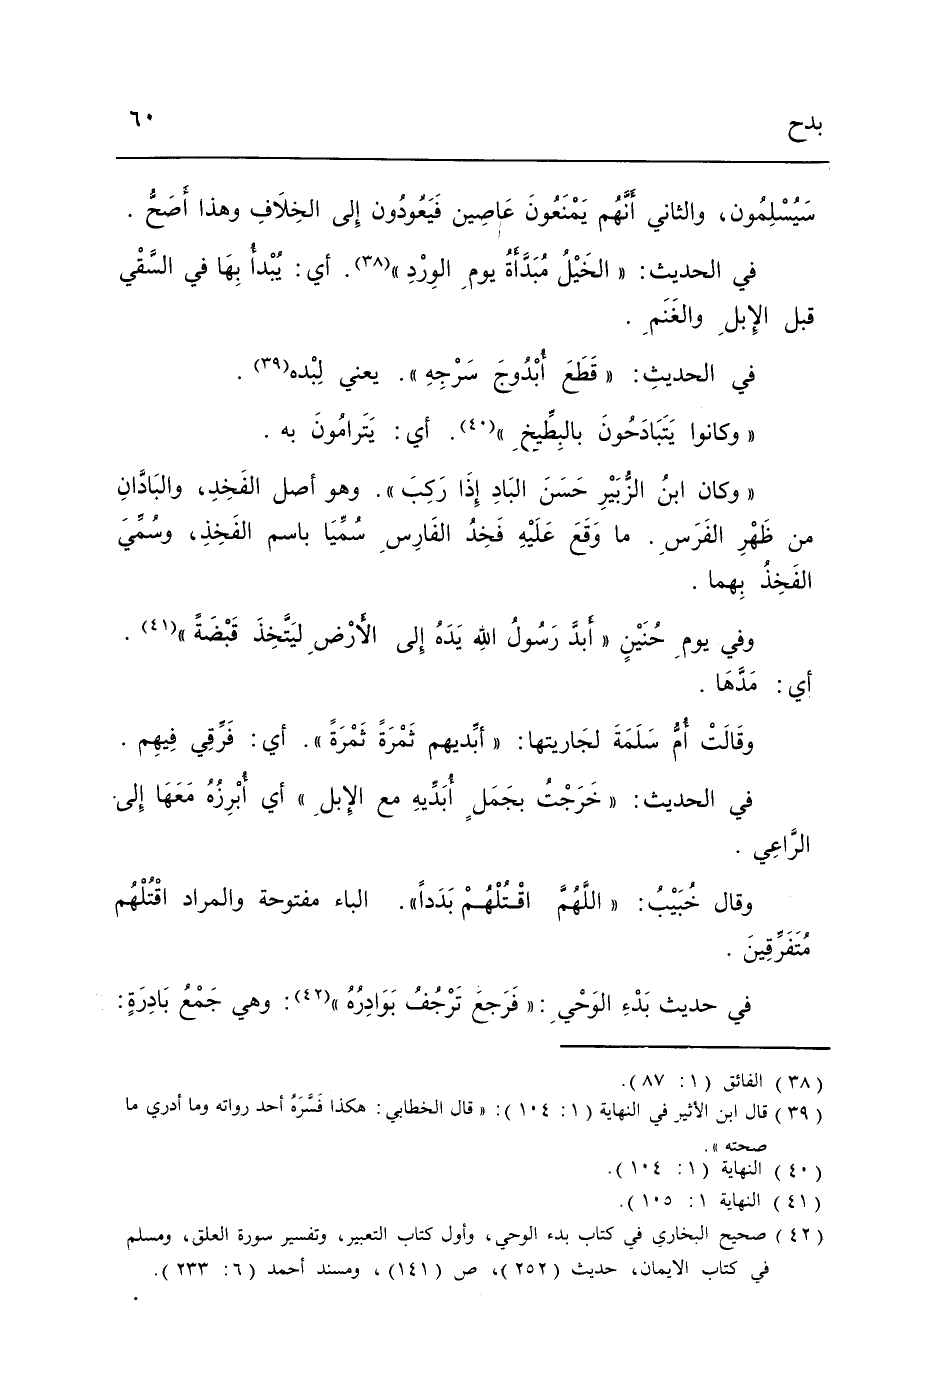 بدح ٦٠
سَيُسْلِمُون، والثاني أَنَّهُم يَمْنَعُونَ عَاصِين فَيَعُودُون إِلى الخِلَافِ وهذا أَصَحُّ .
في الحديث: « الخَيْلُ مُبَدَّأَةٌ يوم الوِرْدِ »(٣٨). أي: يُبْدأُ بِهَا في السَّقْي
قبل الإِبلِ والغَنَمِ .
في الحديثِ: « قَطَعَ أُبْدُوجَ سَرْجِهِ ». يعني لِبْده(٣٩) .
« وكانوا يَتَبَادَحُونَ بالبِطِّيخِ »(٤٠). أي: يَتَرامُونَ به .
« وكان ابنُ الزُّبَيْرِ حَسَنَ البَادِ إِذَا رَكِبَ ». وهو أصل الفَخِدِ، والبَادَّانِ
من ظَهْرِ الفَرَسِ . ما وَقَعَ عَلَيْهِ فَخِذُ الفَارِسِ سُمِّيَا باسم الفَخِذِ، وسُمِّيَ
الفَخِذُ بِهما .
وفي يومِ حُنَيْنٍ « أَبدَّ رَسُولُ اللهِ يَدَهُ إِلى الأَرْضِ لِيَتَّخِذَ قَبْضَةً »(٤١) .
أي: مَدَّهَا .
وقَالَتْ أُمُّ سَلَمَةَ لجَاريتها: « أبِّديهم ثَمْرَةً ثَمْرَةً ». أي: فَرِّقِي فِيهِم .
في الحديث: « خَرَجْتُ بجَملٍ أُبَدِّيهِ مع الإِبلِ » أي أُبْرِزُهُ مَعَهَا إِلى
الرَّاعِي .
وقال خُبَيْبُ: « اللَّهُمَّ اقْتُلْهُمْ بَدَداً». الباء مفتوحة والمراد اقْتُلْهُم
مُتَفَرِّقِينَ .
في حديث بَدْءِ الوَحْيِ :« فَرَجعَ تَرْجُفُ بَوَادِرُهُ »(٤٢): وهي جَمْعُ بَادِرَةٍ:
(٣٨) الفائق (١: ٨٧).
(٣٩) قال ابن الأثير في النهاية (١: ١٠٤): « قال الخطابي: هكذا فَسَّرَهُ أحد رواته وما أدري ما
صحته ».
(٤٠) النهاية (١: ١٠٤).
(٤١) النهاية ١: ١٠٥).
(٤٢) صحيح البخاري في كتاب بدء الوحي، وأول كتاب التعبير، وتفسير سورة العلق، ومسلم
في كتاب الايمان، حديث (٢٥٢)، ص (١٤١)، ومسند أحمد (٦: ٢٣٣).